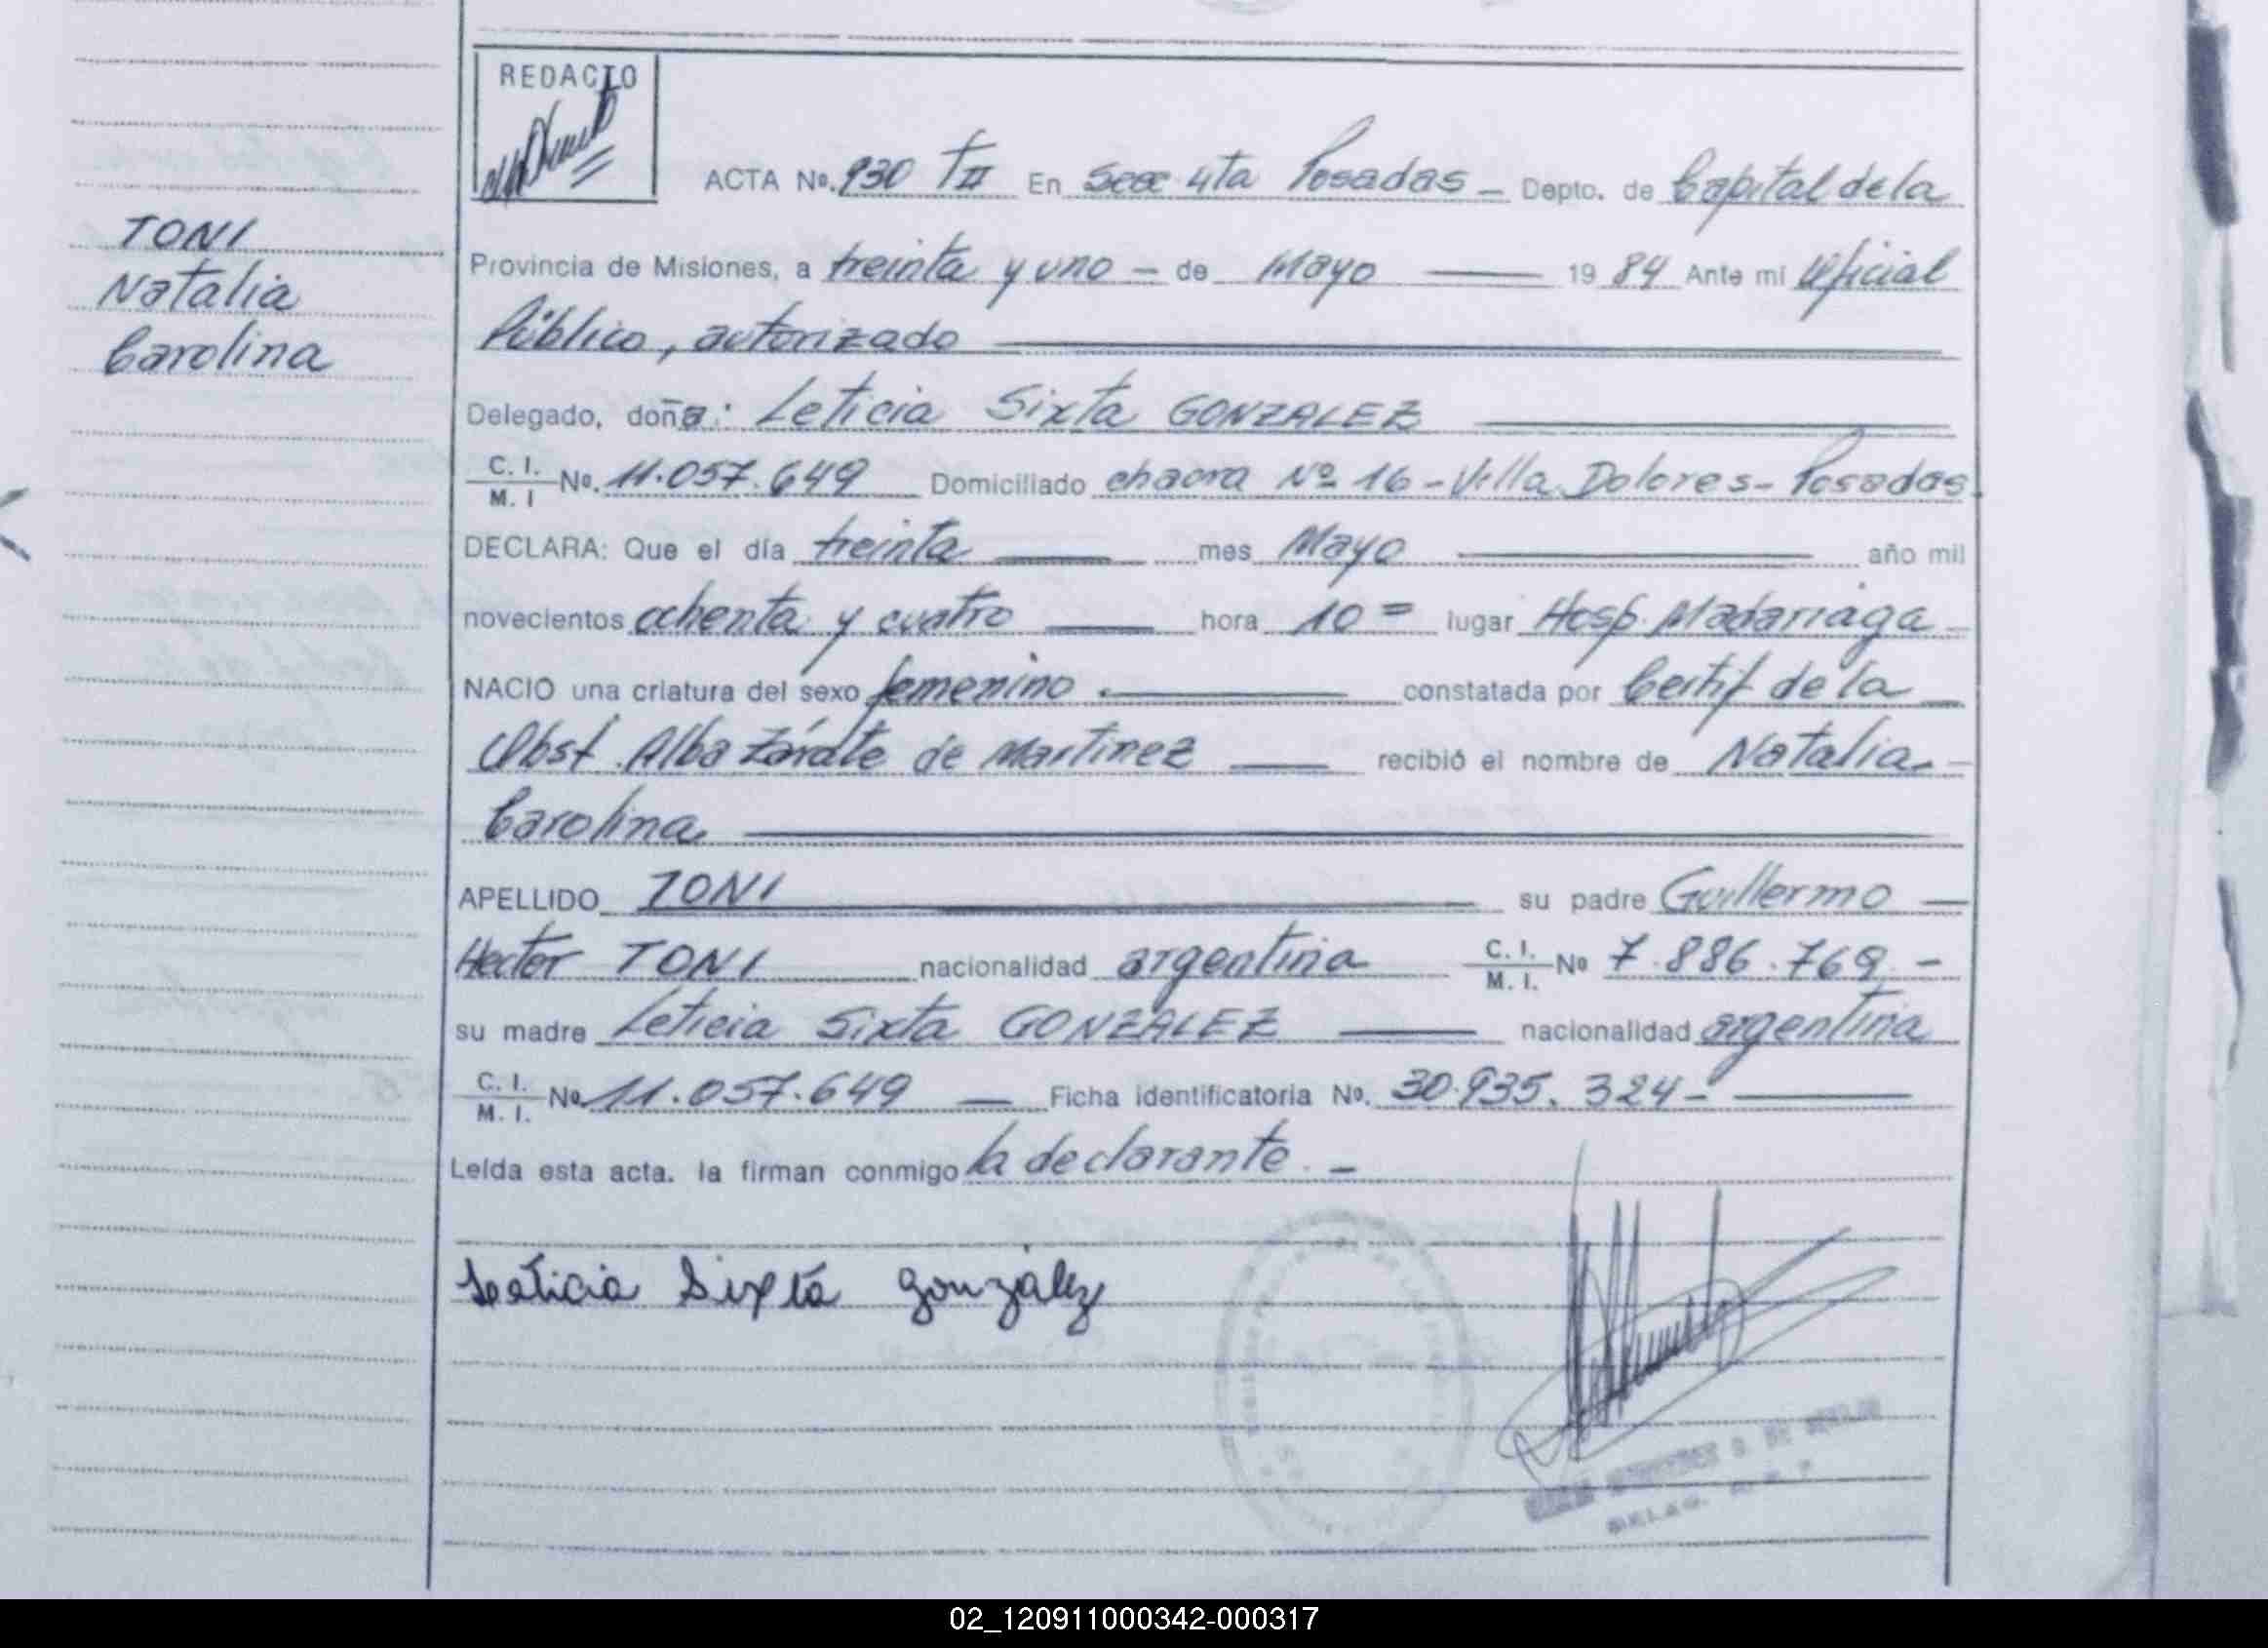 REDACTO
ACTA No. 930 TII En Secc 4ta Posadas - Depto. de Capital de la
TONI
Natalia
Carolina
Provincia de Misiones, a treinta y uno - de Mayo 19 84 Ante mi Oficial
Público, autorizado
Delegado, doña: Leticia Sixta GONZALEZ
C. I. / M. I No. 11.057.649 Domiciliado chacra Nº 16 - Villa Dolores - Posadas.
DECLARA: Que el día treinta mes Mayo año mil
novecientos ochenta y cuatro hora 10 = lugar Hosp. Madariaga -
NACIO una criatura del sexo femenino . constatada por Certif de la
Obst. Alba Zárate de Martinez recibió el nombre de Natalia -
Carolina
APELLIDO TONI su padre Guillermo
Hector TONI nacionalidad argentina C. I. / M. I. No 7.886.769 -
su madre Leticia Sixta GONZALEZ nacionalidad argentina
C. I. / M. I. No. 11.057.649 - Ficha identificatoria No. 30.935.324 -
Leída esta acta. la firman conmigo la declarante. -
Leticia Sixta gonzález
DELAG.
02_120911000342-000317